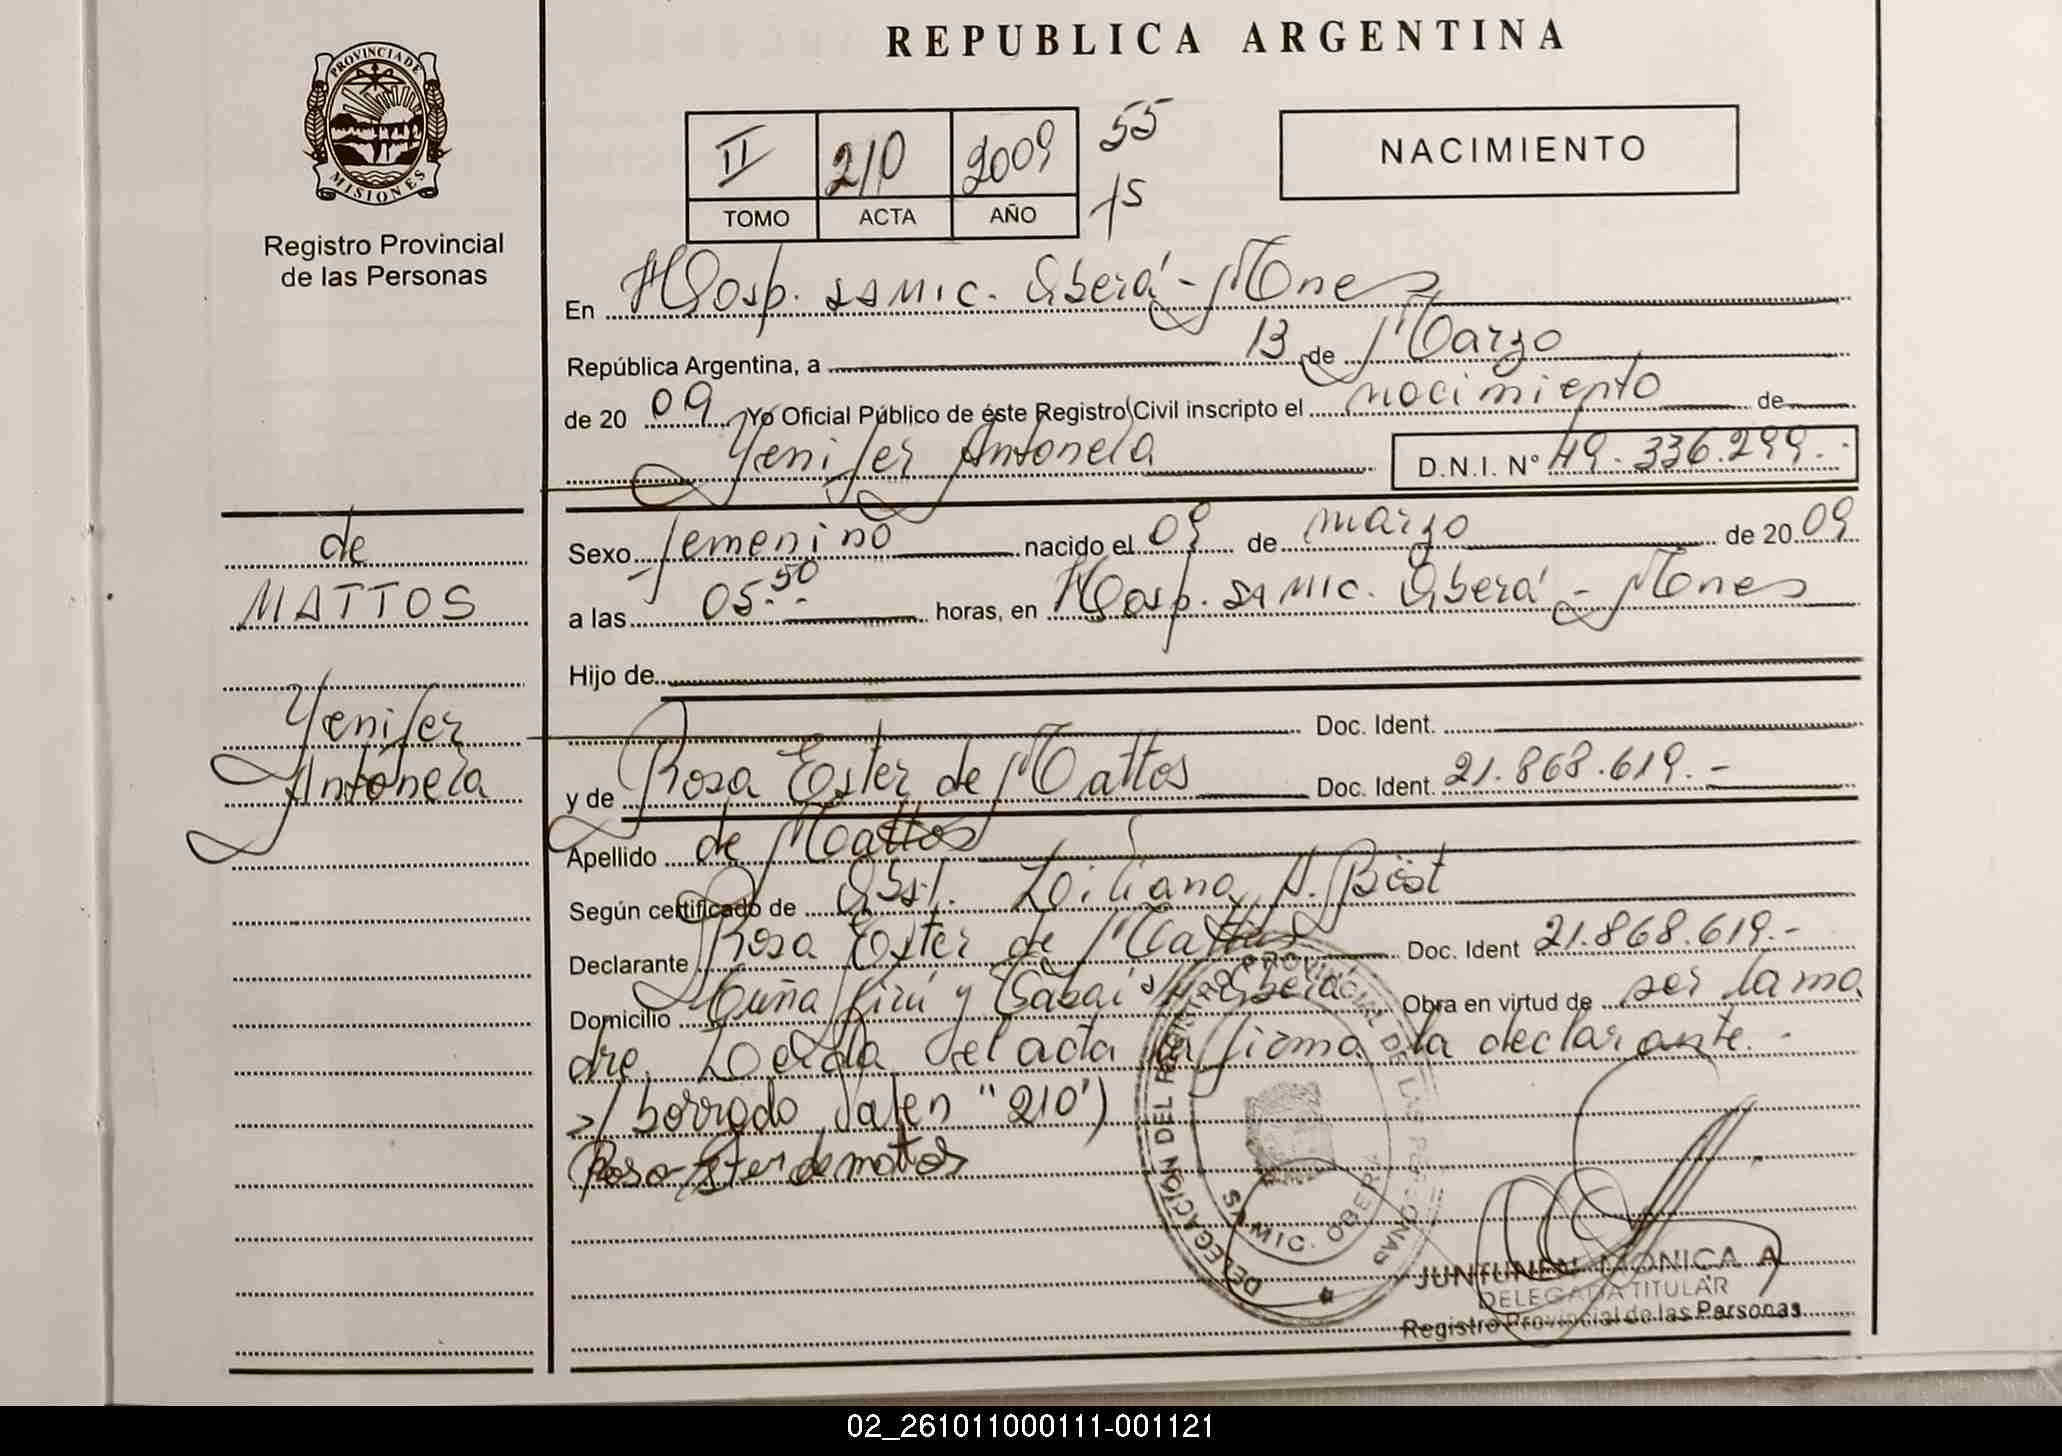 REPUBLICA ARGENTINA
PROVINCIA DE
MISIONES
Registro Provincial
de las Personas
II 210 2009 55
TOMO ACTA AÑO 15
NACIMIENTO
En Hosp. SAMIC. Oberá - Mnes
República Argentina, a 13 de Marzo
de 20 09 Yo Oficial Público de éste Registro Civil inscripto el nacimiento de
Yenifer Antonela D.N.I. Nº 49.336.299.-
de
MATTOS
Yenifer
Antonela
Sexo femenino nacido el 09 de marzo de 20 09
a las 05.50 horas, en Hosp. SAMIC. Oberá - Mnes
Hijo de
Doc. Ident.
y de Rosa Ester de Mattos Doc. Ident. 21.868.619.-
Apellido de Mattos
Según certificado de Obst. A. Böst
Declarante Rosa Ester de Mattos Doc. Ident 21.868.619.-
Domicilio Cuña Pirú y Oberá Obra en virtud de ser la ma
dre. Leída el acta la firma la declarante.-
s/ borrado Valen "210")
Rosa Ester de mattos
DELEGACIÓN DEL REGISTRO PROVINCIAL DE LAS PERSONAS
SAMIC. OBERA
JUNTUNEN MONICA A
DELEGADA TITULAR
Registro Provincial de las Personas
02_261011000111-001121